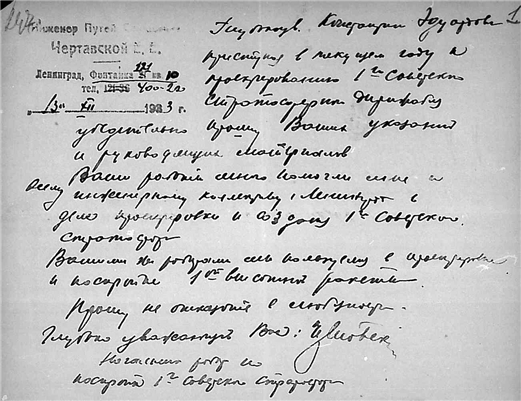 Инженер Путей
Чертовской Е. Е.
Ленинград, Фонтанка 121 кв. 10
тел. 400-20
"13" XII 1933 г.
Глубокоув. Константин Эдуардович
Приступая в текущем году к
проектированию 1го Советского
Стратосферного дирижабля
убедительно прошу Ваших указаний
и руководящих материалов
Ваши работы много помогли мне и
всему инженерному коллективу г. Ленинграда в
деле проектировки и создания 1го Советского
стратостата
Вашими же работами мы пользуемся в
и постройке 1ой высотной ракеты.
Прошу не отказать в любезности.
Глубоко уважающий Вас:
Начальник работ по
постройке 1го Советского стратостата